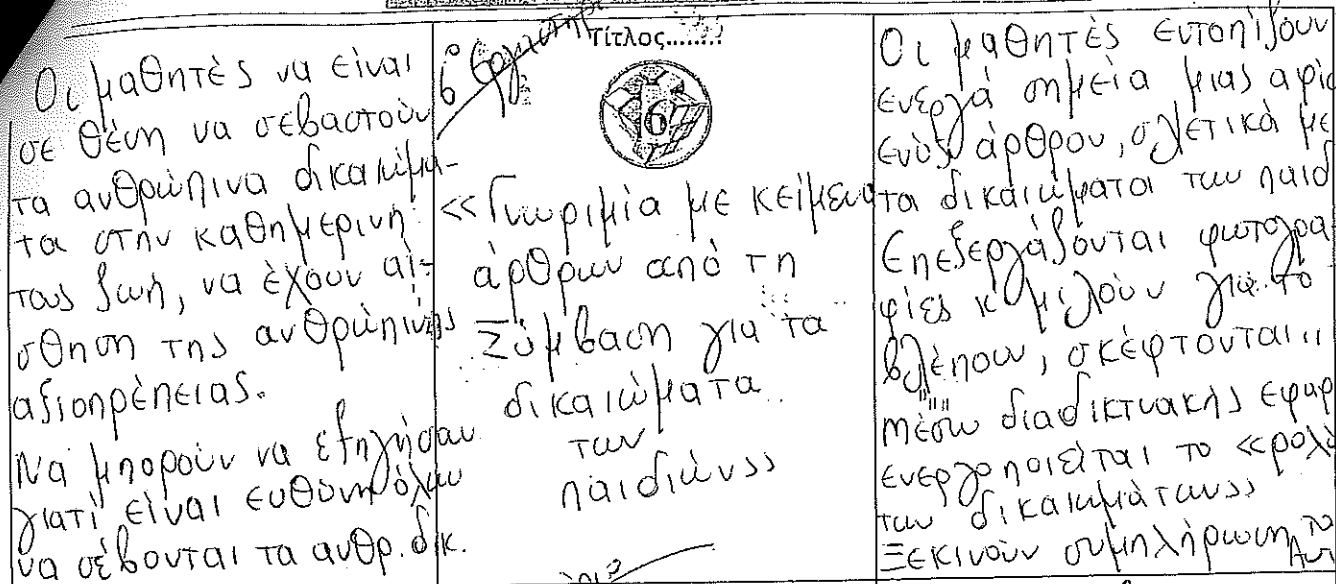 Οι μαθητές να είναι
σε θέση να σεβαστούν
τα ανθρώπινα δικαιώμα-
τα στην καθημερινή
τους ζωή, να έχουν αί-
σθηση της ανθρώπινης
αξιοπρέπειας.
Να μπορούν να εξηγήσουν
γιατί είναι ευθύνη όλων
να σέβονται τα ανθρ. δικ.
6ο Εργαστήρι
Τίτλος.......
16
«Γνωριμία με κείμενα
άρθρων από τη
Σύμβαση για τα
δικαιώματα
των
παιδιών»
Οι μαθητές εντοπίζουν
ενεργά σημεία μιας αφίσ
ενός άρθρου, σχετικά με
τα δικαιώματα των παιδ
Επεξεργάζονται φωτογρα
φίες κ' μιλούν για το
βλέπουν, σκέφτονται"
Μέσω διαδικτυακής εφαρ
ενεργοποιείται το «ρολό
των δικαιωμάτων»
Ξεκινούν συμπλήρωση το